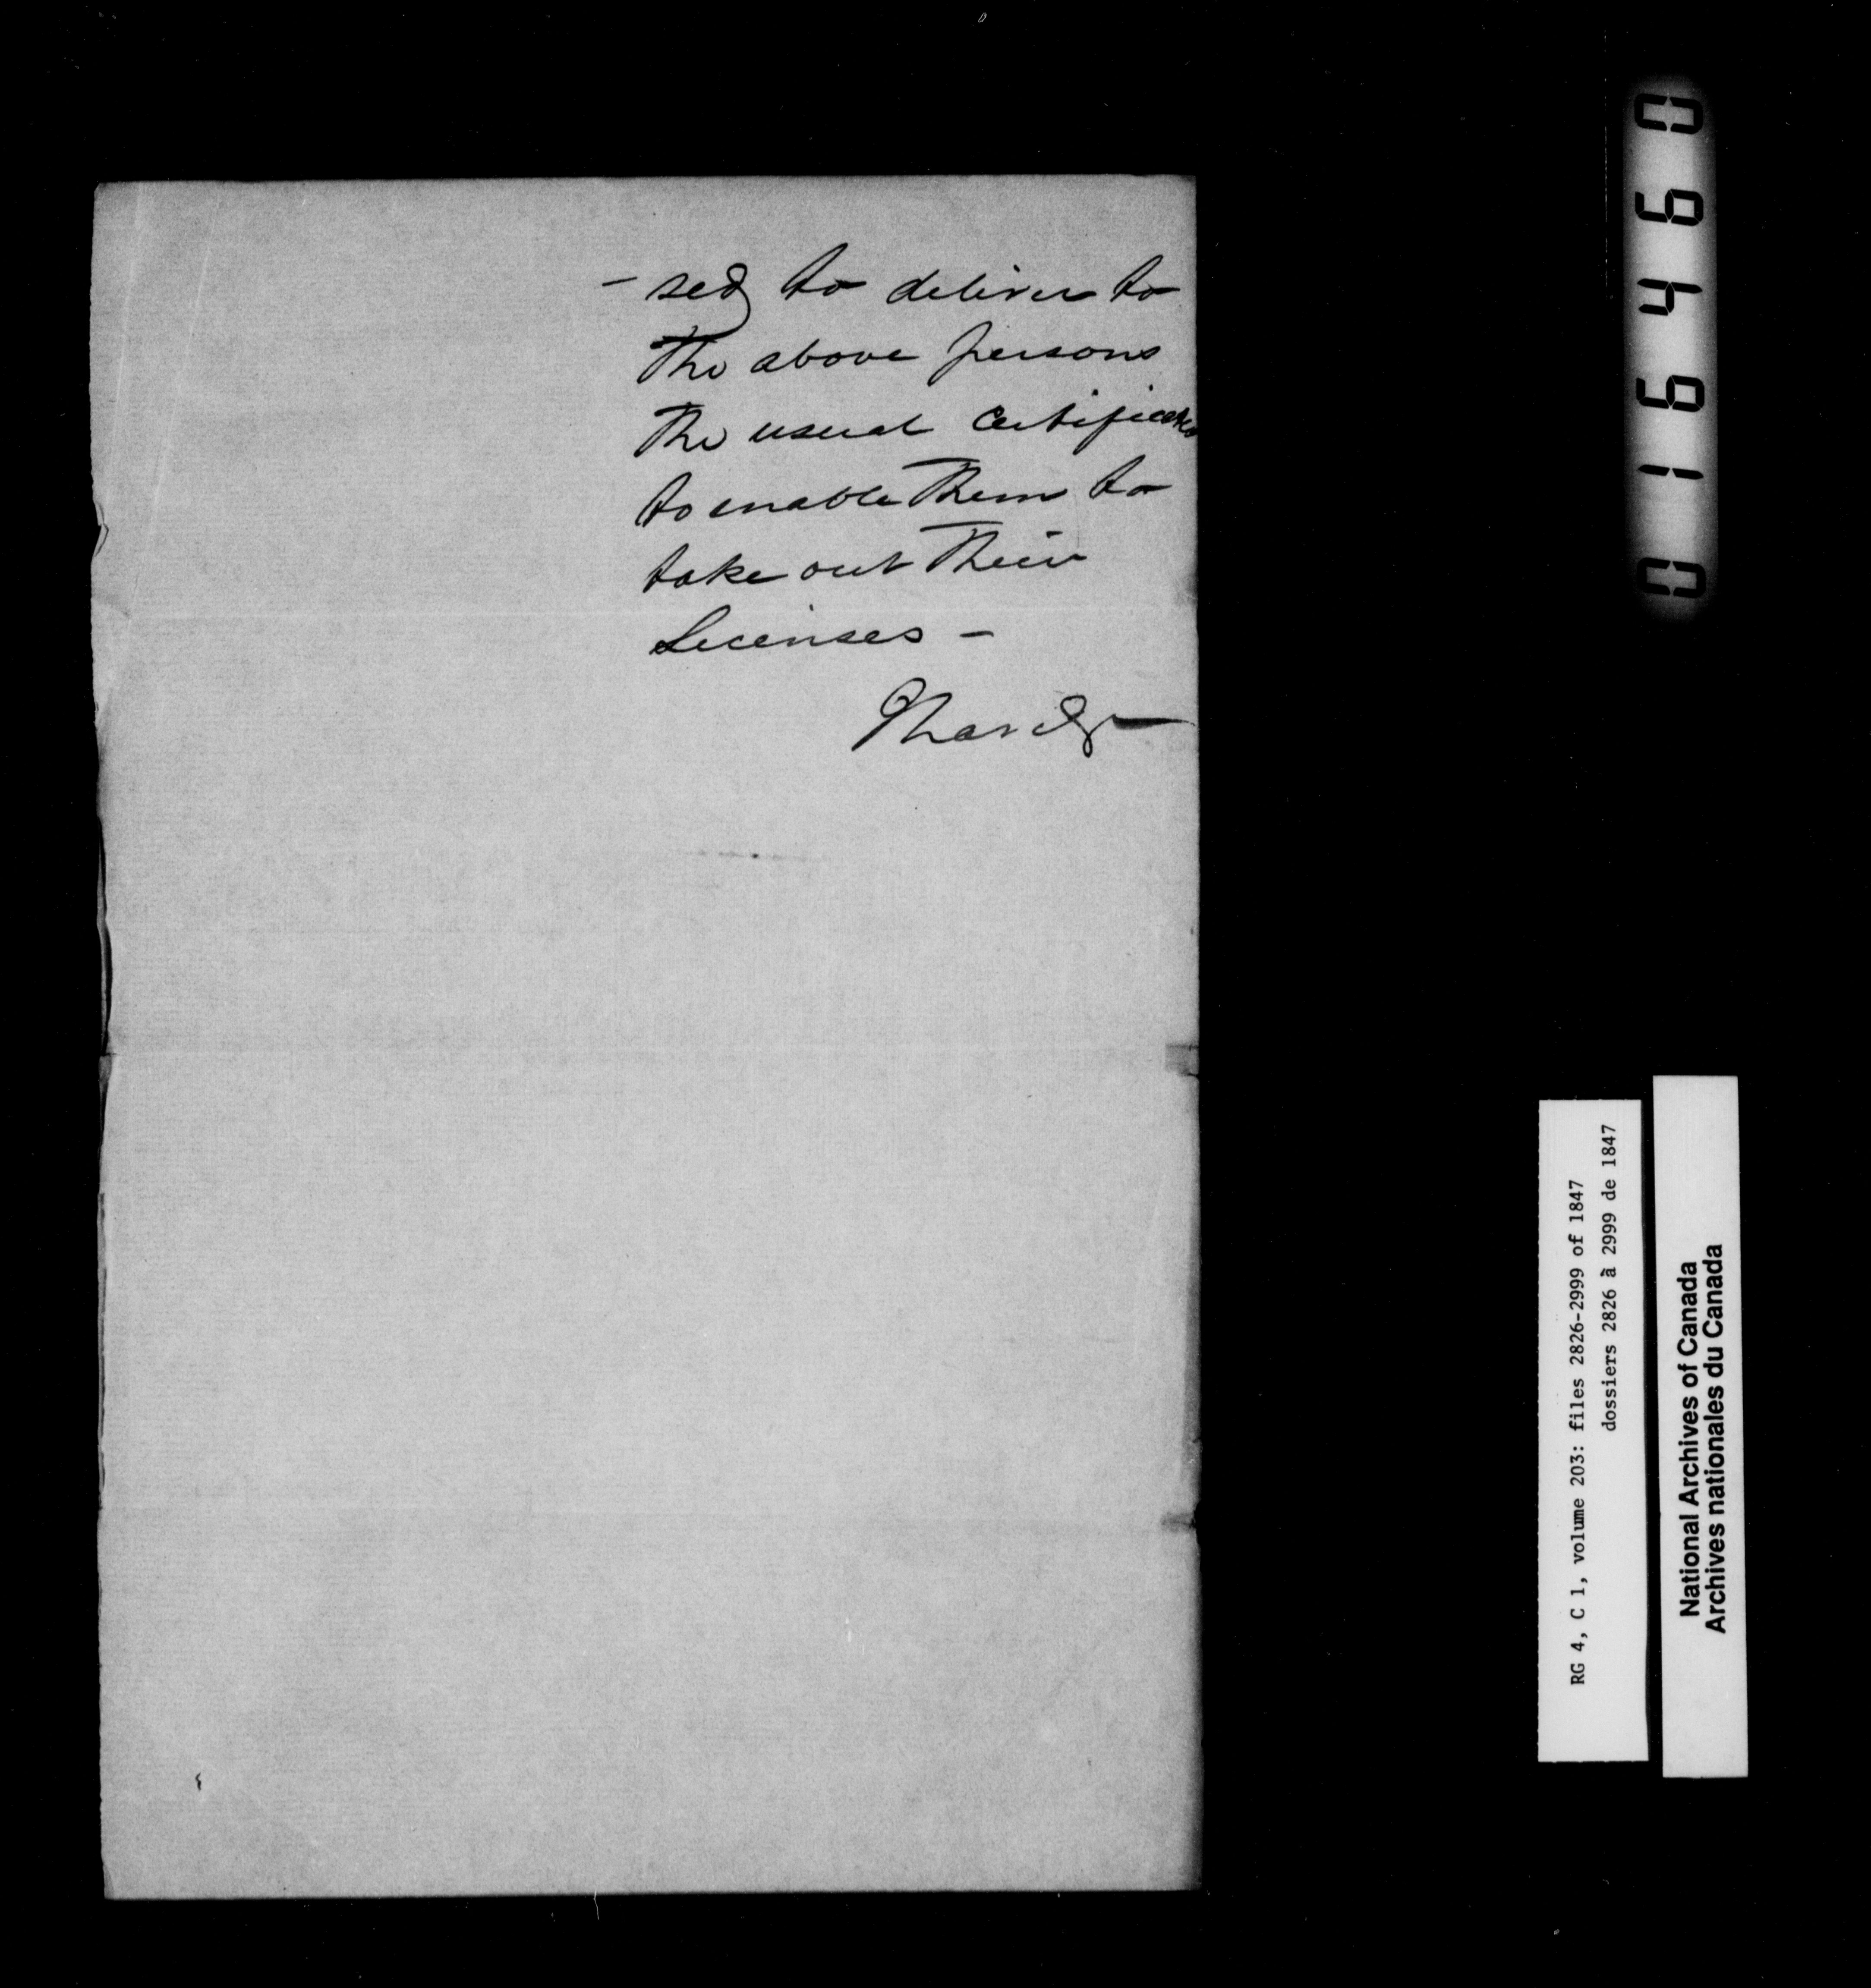 - sed to deliver to
the above persons
the usual Certificates
to enable them to
take out their
Licenses -
016460
RG 4, C 1, volume 203: files 2826-2999 of 1847
dossiers 2826 à 2999 de 1847
National Archives of Canada
Archives nationales du Canada